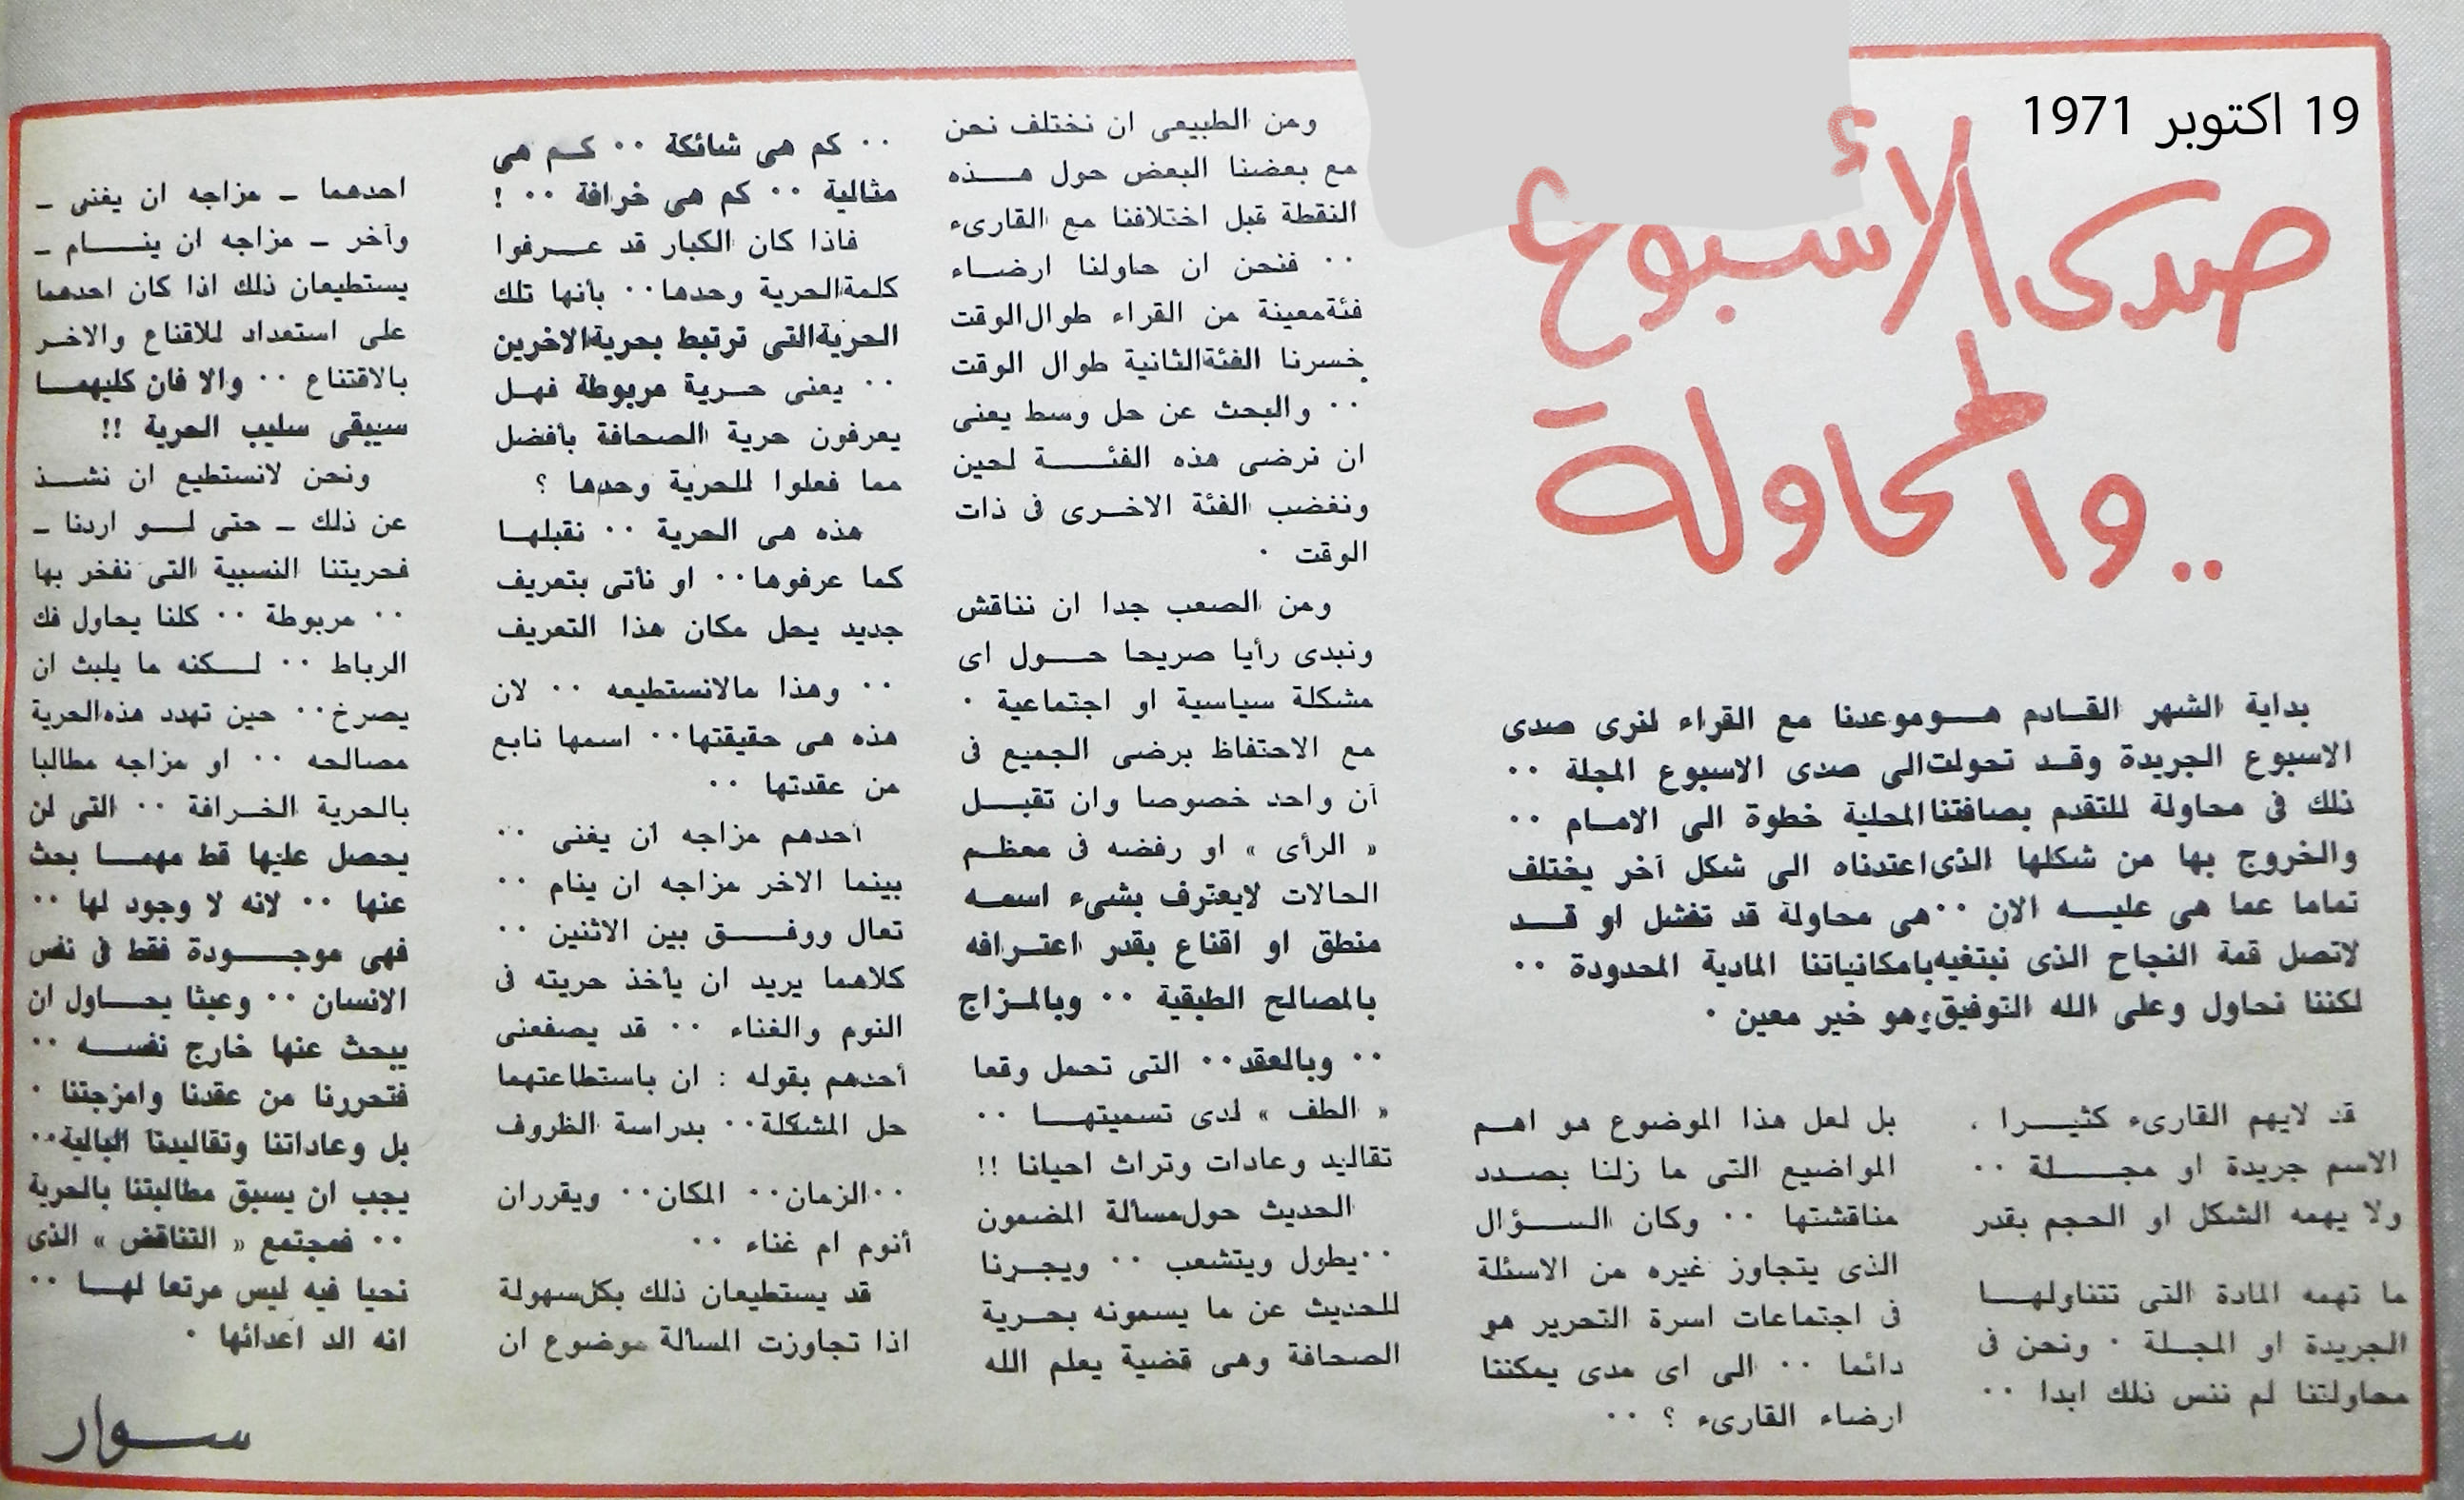 19 اكتوبر 1971
صدى الأسبوع
.. والمحاولة
بداية الشهر القادم هو موعدنا مع القراء لنرى صدى
الاسبوع الجريدة وقد تحولت الى صدى الاسبوع المجلة ..
ذلك فى محاولة للتقدم بصافتنا المحلية خطوة الى الامام ..
والخروج بها من شكلها الذى اعتدناه الى شكل آخر يختلف
تماما عما هى عليه الان .. هى محاولة قد تفشل او قد
لاتصل قمة النجاح الذى نبتغيه بامكانياتنا المادية المحدودة ..
لكننا نحاول وعلى الله التوفيق وهو خير معين .
قد لايهم القارىء كثيرا .
الاسم جريدة او مجلة ..
ولا يهمه الشكل او الحجم بقدر
ما تهمه المادة التى تتناولها
الجريدة او المجلة . ونحن فى
محاولتنا لم ننس ذلك ابدا ..
بل لعل هذا الموضوع هو اهم
المواضيع التى ما زلنا بصدد
مناقشتها .. وكان السؤال
الذى يتجاوز غيره من الاسئلة
فى اجتماعات اسرة التحرير هو
دائما .. الى اى مدى يمكننا
ارضاء القارىء ؟ ..
ومن الطبيعى ان نختلف نحن
مع بعضنا البعض حول هذه
النقطة قبل اختلافنا مع القارىء
.. فنحن ان حاولنا ارضاء
فئة معينة من القراء طوال الوقت
خسرنا الفئة الثانية طوال الوقت
.. والبحث عن حل وسط يعنى
ان نرضى هذه الفئة لحين
ونغضب الفئة الاخرى فى ذات
الوقت .
ومن الصعب جدا ان نناقش
ونبدى رأيا صريحا حول اى
مشكلة سياسية او اجتماعية .
مع الاحتفاظ برضى الجميع فى
آن واحد خصوصا وان تقبل
« الرأى » او رفضه فى معظم
الحالات لايعترف بشىء اسمه
منطق او اقناع بقدر اعترافه
بالمصالح الطبقية .. وبالمزاج
.. وبالعقد .. التى تحمل وقعا
« الطف » لدى تسميتها ..
تقاليد وعادات وتراث احيانا !!
الحديث حول مسألة المضمون
.. يطول ويتشعب .. ويجرنا
للحديث عن ما يسمونه بحرية
الصحافة وهى قضية يعلم الله
.. كم هى شائكة .. كم هى
مثالية .. كم هى خرافة .. !
فاذا كان الكبار قد عرفوا
كلمة الحرية وحدها .. بأنها تلك
الحرية التى ترتبط بحرية الاخرين
.. يعنى حرية مربوطة فهل
يعرفون حرية الصحافة بأفضل
مما فعلوا للحرية وحدها ؟
هذه هى الحرية .. نقبلها
كما عرفوها .. او نأتى بتعريف
جديد يحل مكان هذا التعريف
.. وهذا مالانستطيعه .. لان
هذه هى حقيقتها .. اسمها نابع
من عقدتها ..
أحدهم مزاجه ان يغنى ..
بينما الاخر مزاجه ان ينام ..
تعال ووفق بين الاثنين ..
كلاهما يريد ان يأخذ حريته فى
النوم والغناء .. قد يصفعنى
أحدهم بقوله : ان باستطاعتهما
حل المشكلة .. بدراسة الظروف
.. الزمان .. المكان .. ويقرران
أنوم ام غناء ..
قد يستطيعان ذلك بكل سهولة
اذا تجاوزت المسألة موضوع ان
احدهما - مزاجه ان يغنى -
وآخر - مزاجه ان ينام -
يستطيعان ذلك اذا كان احدهما
على استعداد للاقناع والاخر
بالاقتناع .. والا فان كليهما
سيبقى سليب الحرية !!
ونحن لانستطيع ان نشذ
عن ذلك - حتى لو اردنا -
فحريتنا النسبية التى نفخر بها
.. مربوطة .. كلنا يحاول فك
الرباط .. لكنه ما يلبث ان
يصرخ .. حين تهدد هذه الحرية
مصالحه .. او مزاجه مطالبا
بالحرية الخرافة .. التى لن
يحصل عليها قط مهما بحث
عنها .. لانه لا وجود لها ..
فهى موجودة فقط فى نفس
الانسان .. وعبثا يحاول ان
يبحث عنها خارج نفسه ..
فتحررنا من عقدنا وامزجتنا .
بل وعاداتنا وتقاليدنا البالية ..
يجب ان يسبق مطالبتنا بالحرية
.. فمجتمع « التناقض » الذى
نحيا فيه ليس مرتعا لها ..
انه الد اعدائها .
سوار